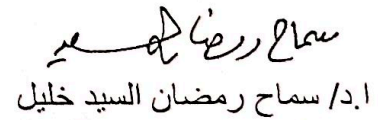 سماح رمضان السيد
ا.د/ سماح رمضان السيد خليل